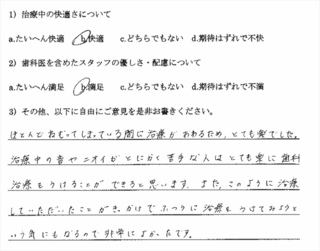 1) 治療中の快適さについて
a.たいへん快適 b.快適 c.どちらでもない d.期待はずれで不快
2) 歯科医を含めたスタッフの優しさ・配慮について
a.たいへん満足 b.満足 c.どちらでもない d.期待はずれで不満
3) その他、以下に自由にご意見を是非お書きください。
ほとんどねむってしまっている間に治療がおわるため、とても楽でした。
治療中の音やニオイがとにかく苦手な人はとても楽に歯科
治療をうけることができると思います。また、このように治療
していただいたことがきっかけでふつうに治療をうけてみようと
いう気にもなるので非常によかったです。